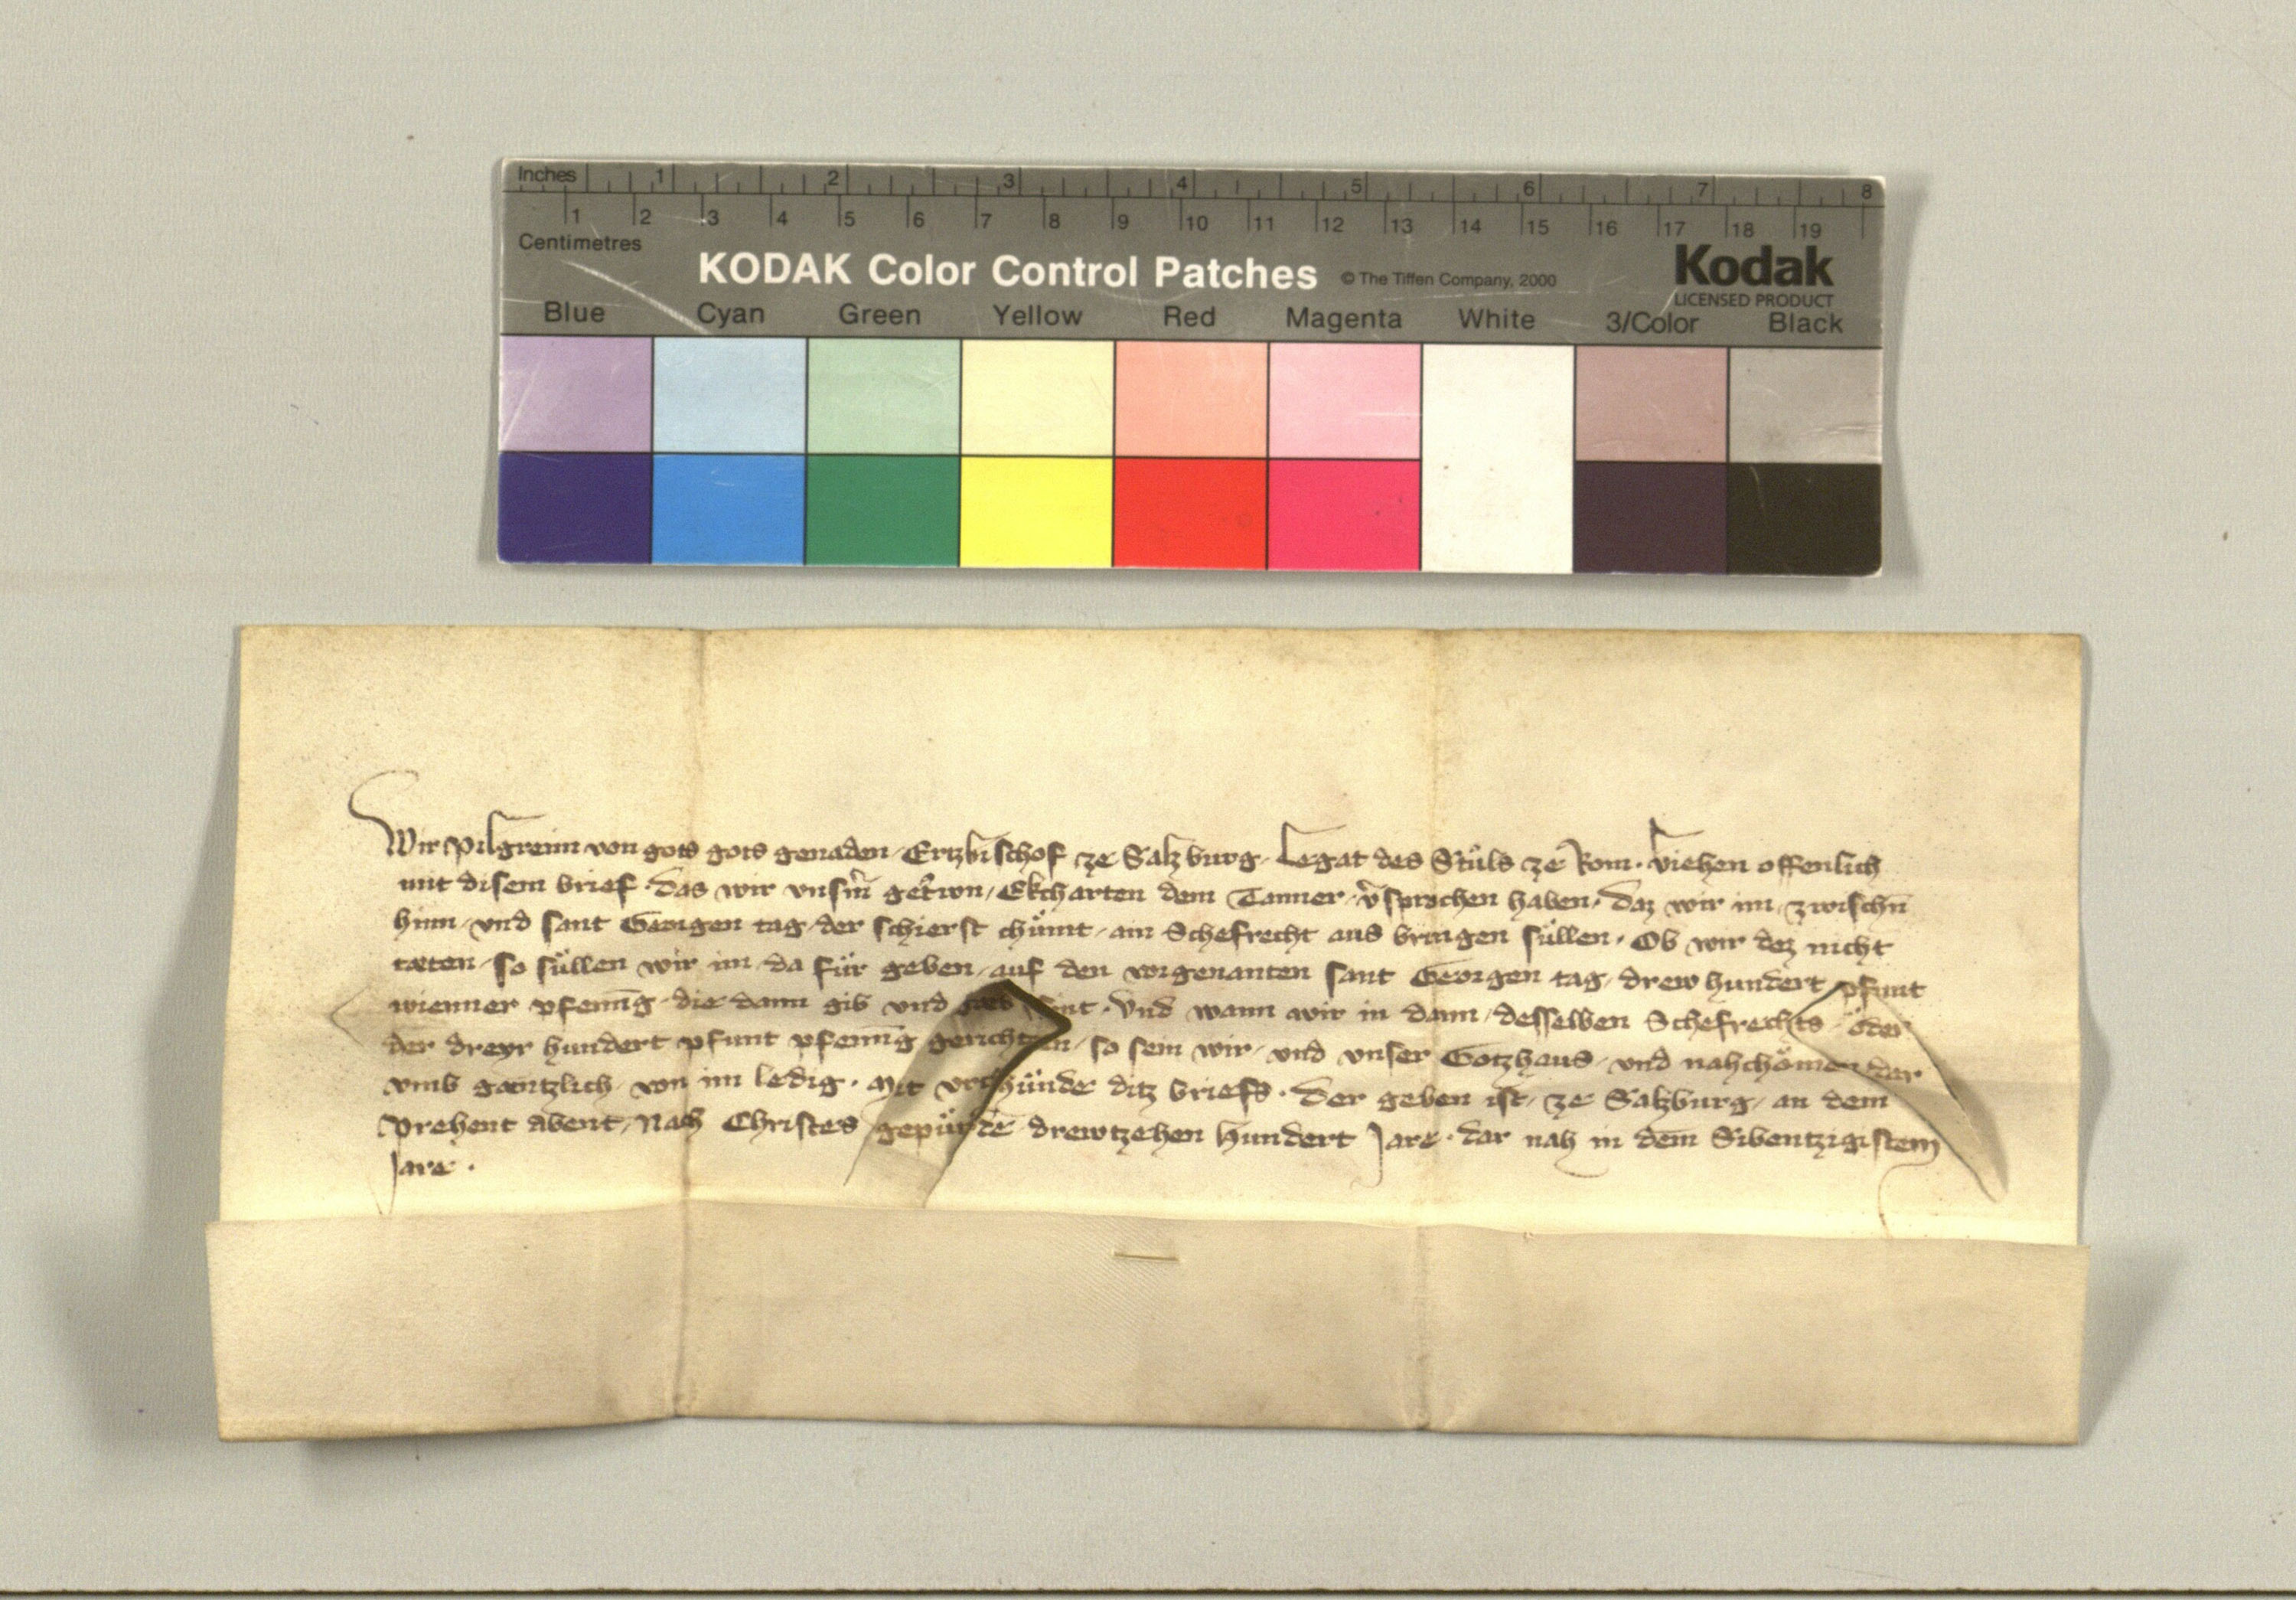 Inches 1 2 3 4 5 6 7 8
1 2 3 4 5 6 7 8 9 10 11 12 13 14 15 16 17 18 19
Centimetres
KODAK Color Control Patches © The Tiffen Company, 2000 Kodak
LICENSED PRODUCT
Blue Cyan Green Yellow Red Magenta White 3/Color Black
Wir Pilgreim von gots gots genaden Ertzbischof ze Saltzburg Legat des Stůls ze Rom. Viehen offenlich
mit disem brief. das wir vnsm̄ getrwn, Ekcharten dem Tanner v̄sprochen haben, daz wir im zwischn̄
hinn, vnd sant Georgen tag, der schierst chu̇mt, ain Schefrecht aus bringen su̇llen. Ob wir dez nicht
tæten, so su̇llen wir im da fu̇r geben, auf den vorgenanten sant Georgen tag, drew hundert pfunt
wienner pfenīg die dann gib vnd gæb sint. Vnd wann wir in dann, desselben Schefrechts oder
der dreyr hundert pfunt pfenīg gerichten, so sein wir, vnd vnser Gotzhaus, vnd nahchomen dar
vmb gæntzlich von im ledig. Mit vrchu̇nde ditz briefs. Der geben ist, ze Saltzburg, an dem
Prehent Abent, Nach Christes gepu̇rde drewtzehen hundert Jare. dar nah in dem Sibentzigistem
Jare.